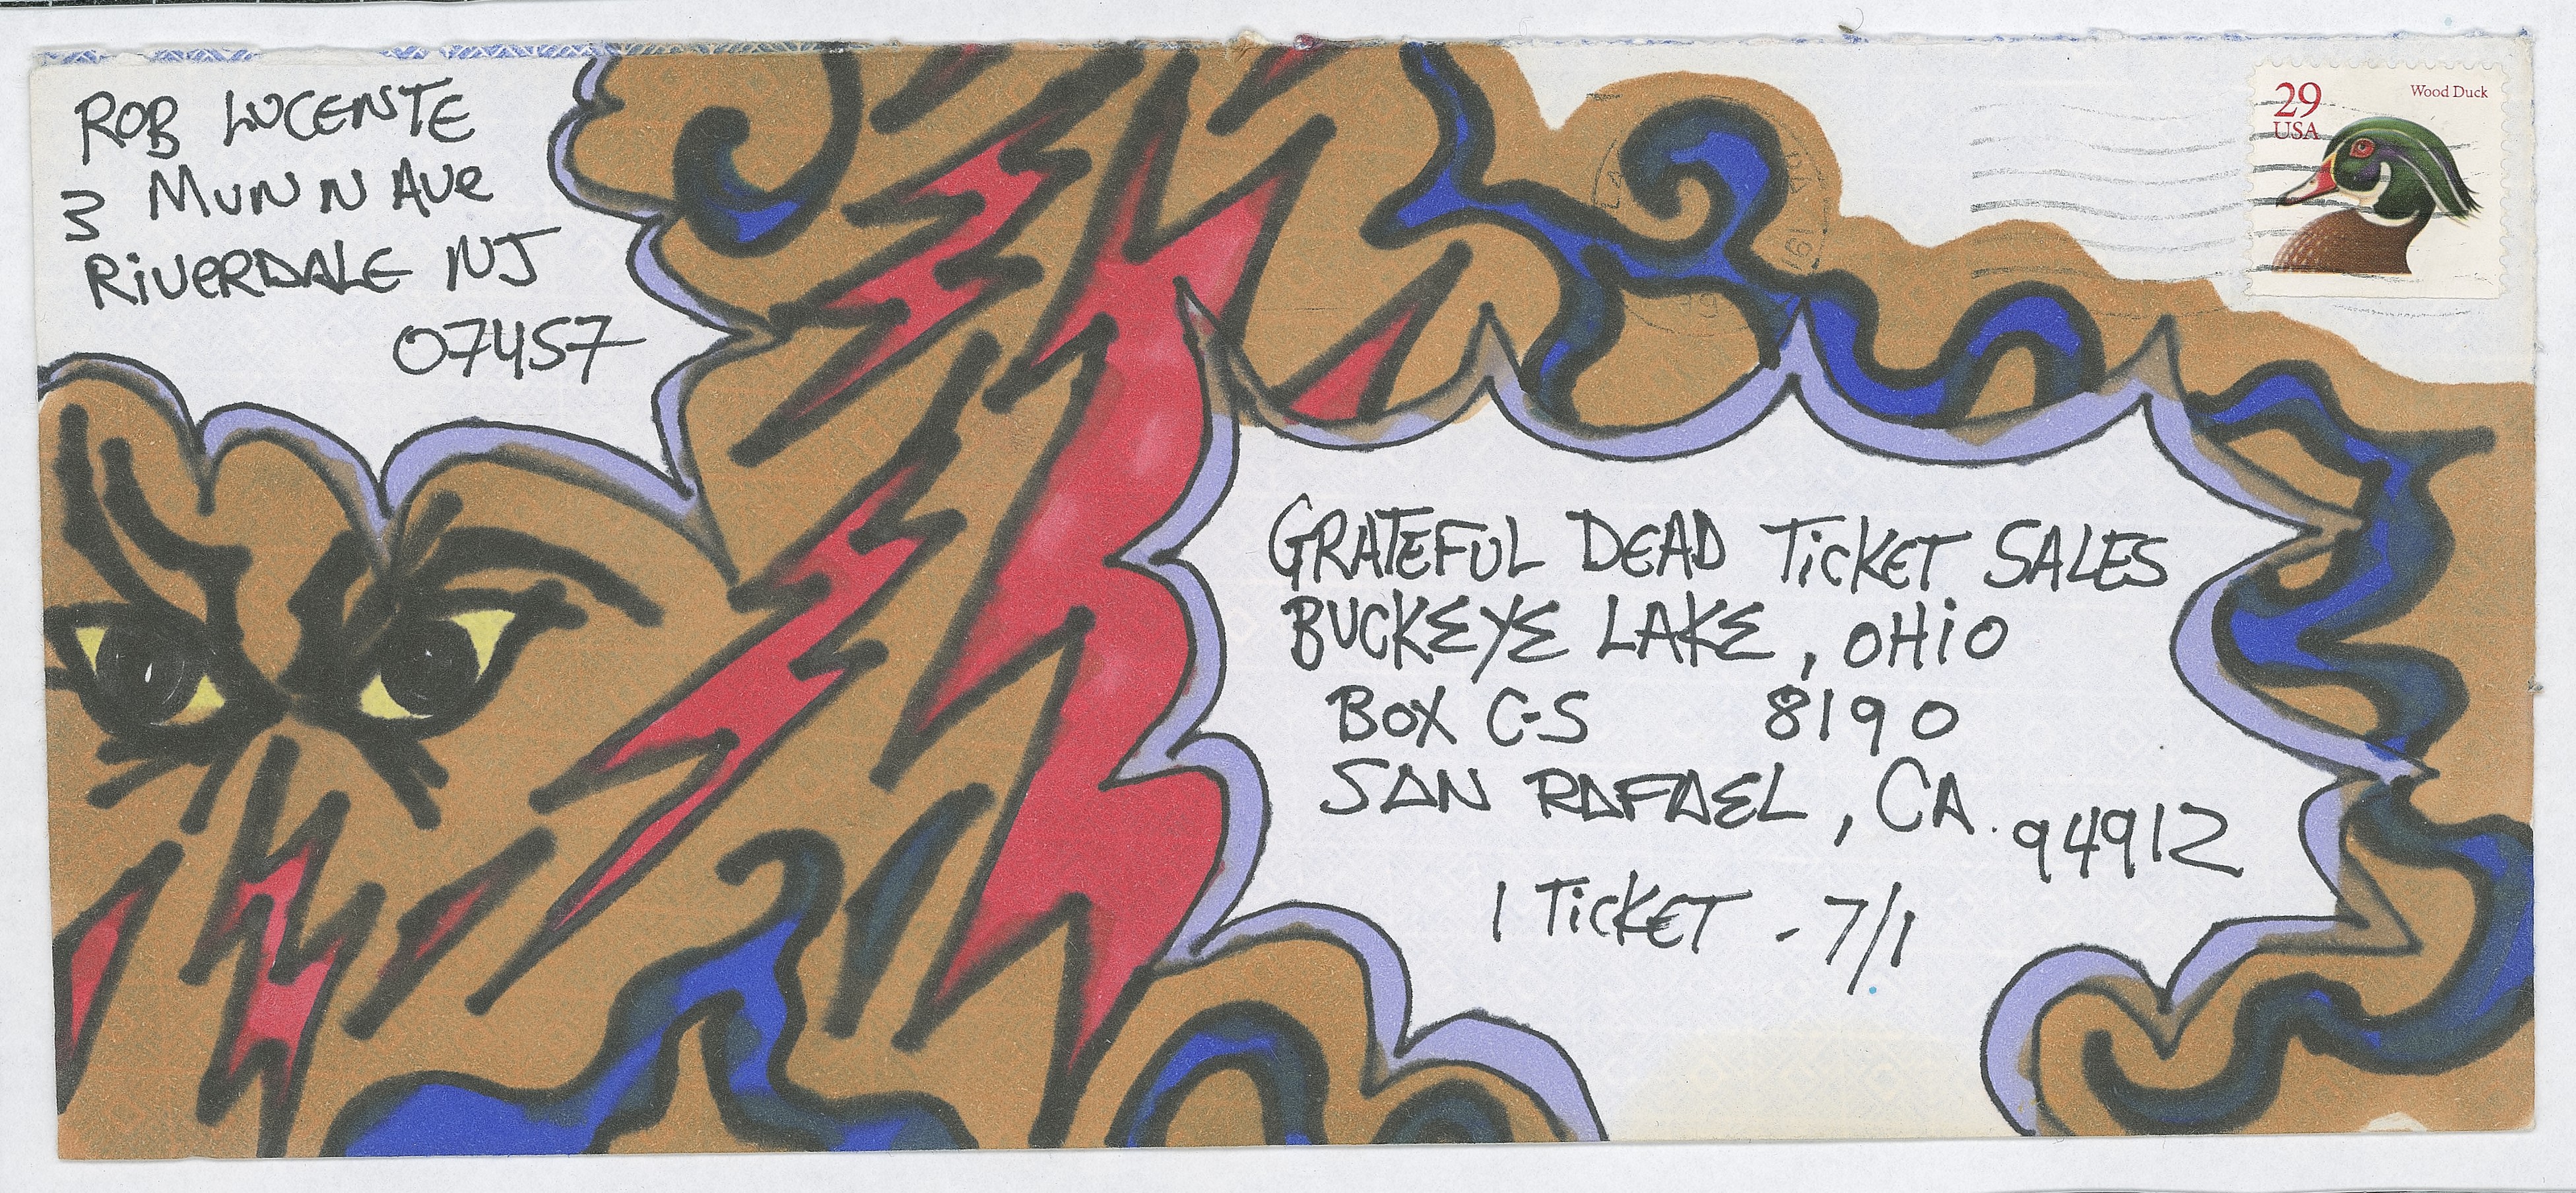 ROB LUCENTE
3 MUNN AVE
RIVERDALE NJ
07457
29
USA
Wood Duck
GRATEFUL DEAD TICKET SALES
BUCKEYE LAKE, OHIO
BOX C-S 8190
SAN RAFAEL, CA. 94912
1 TICKET - 7/1